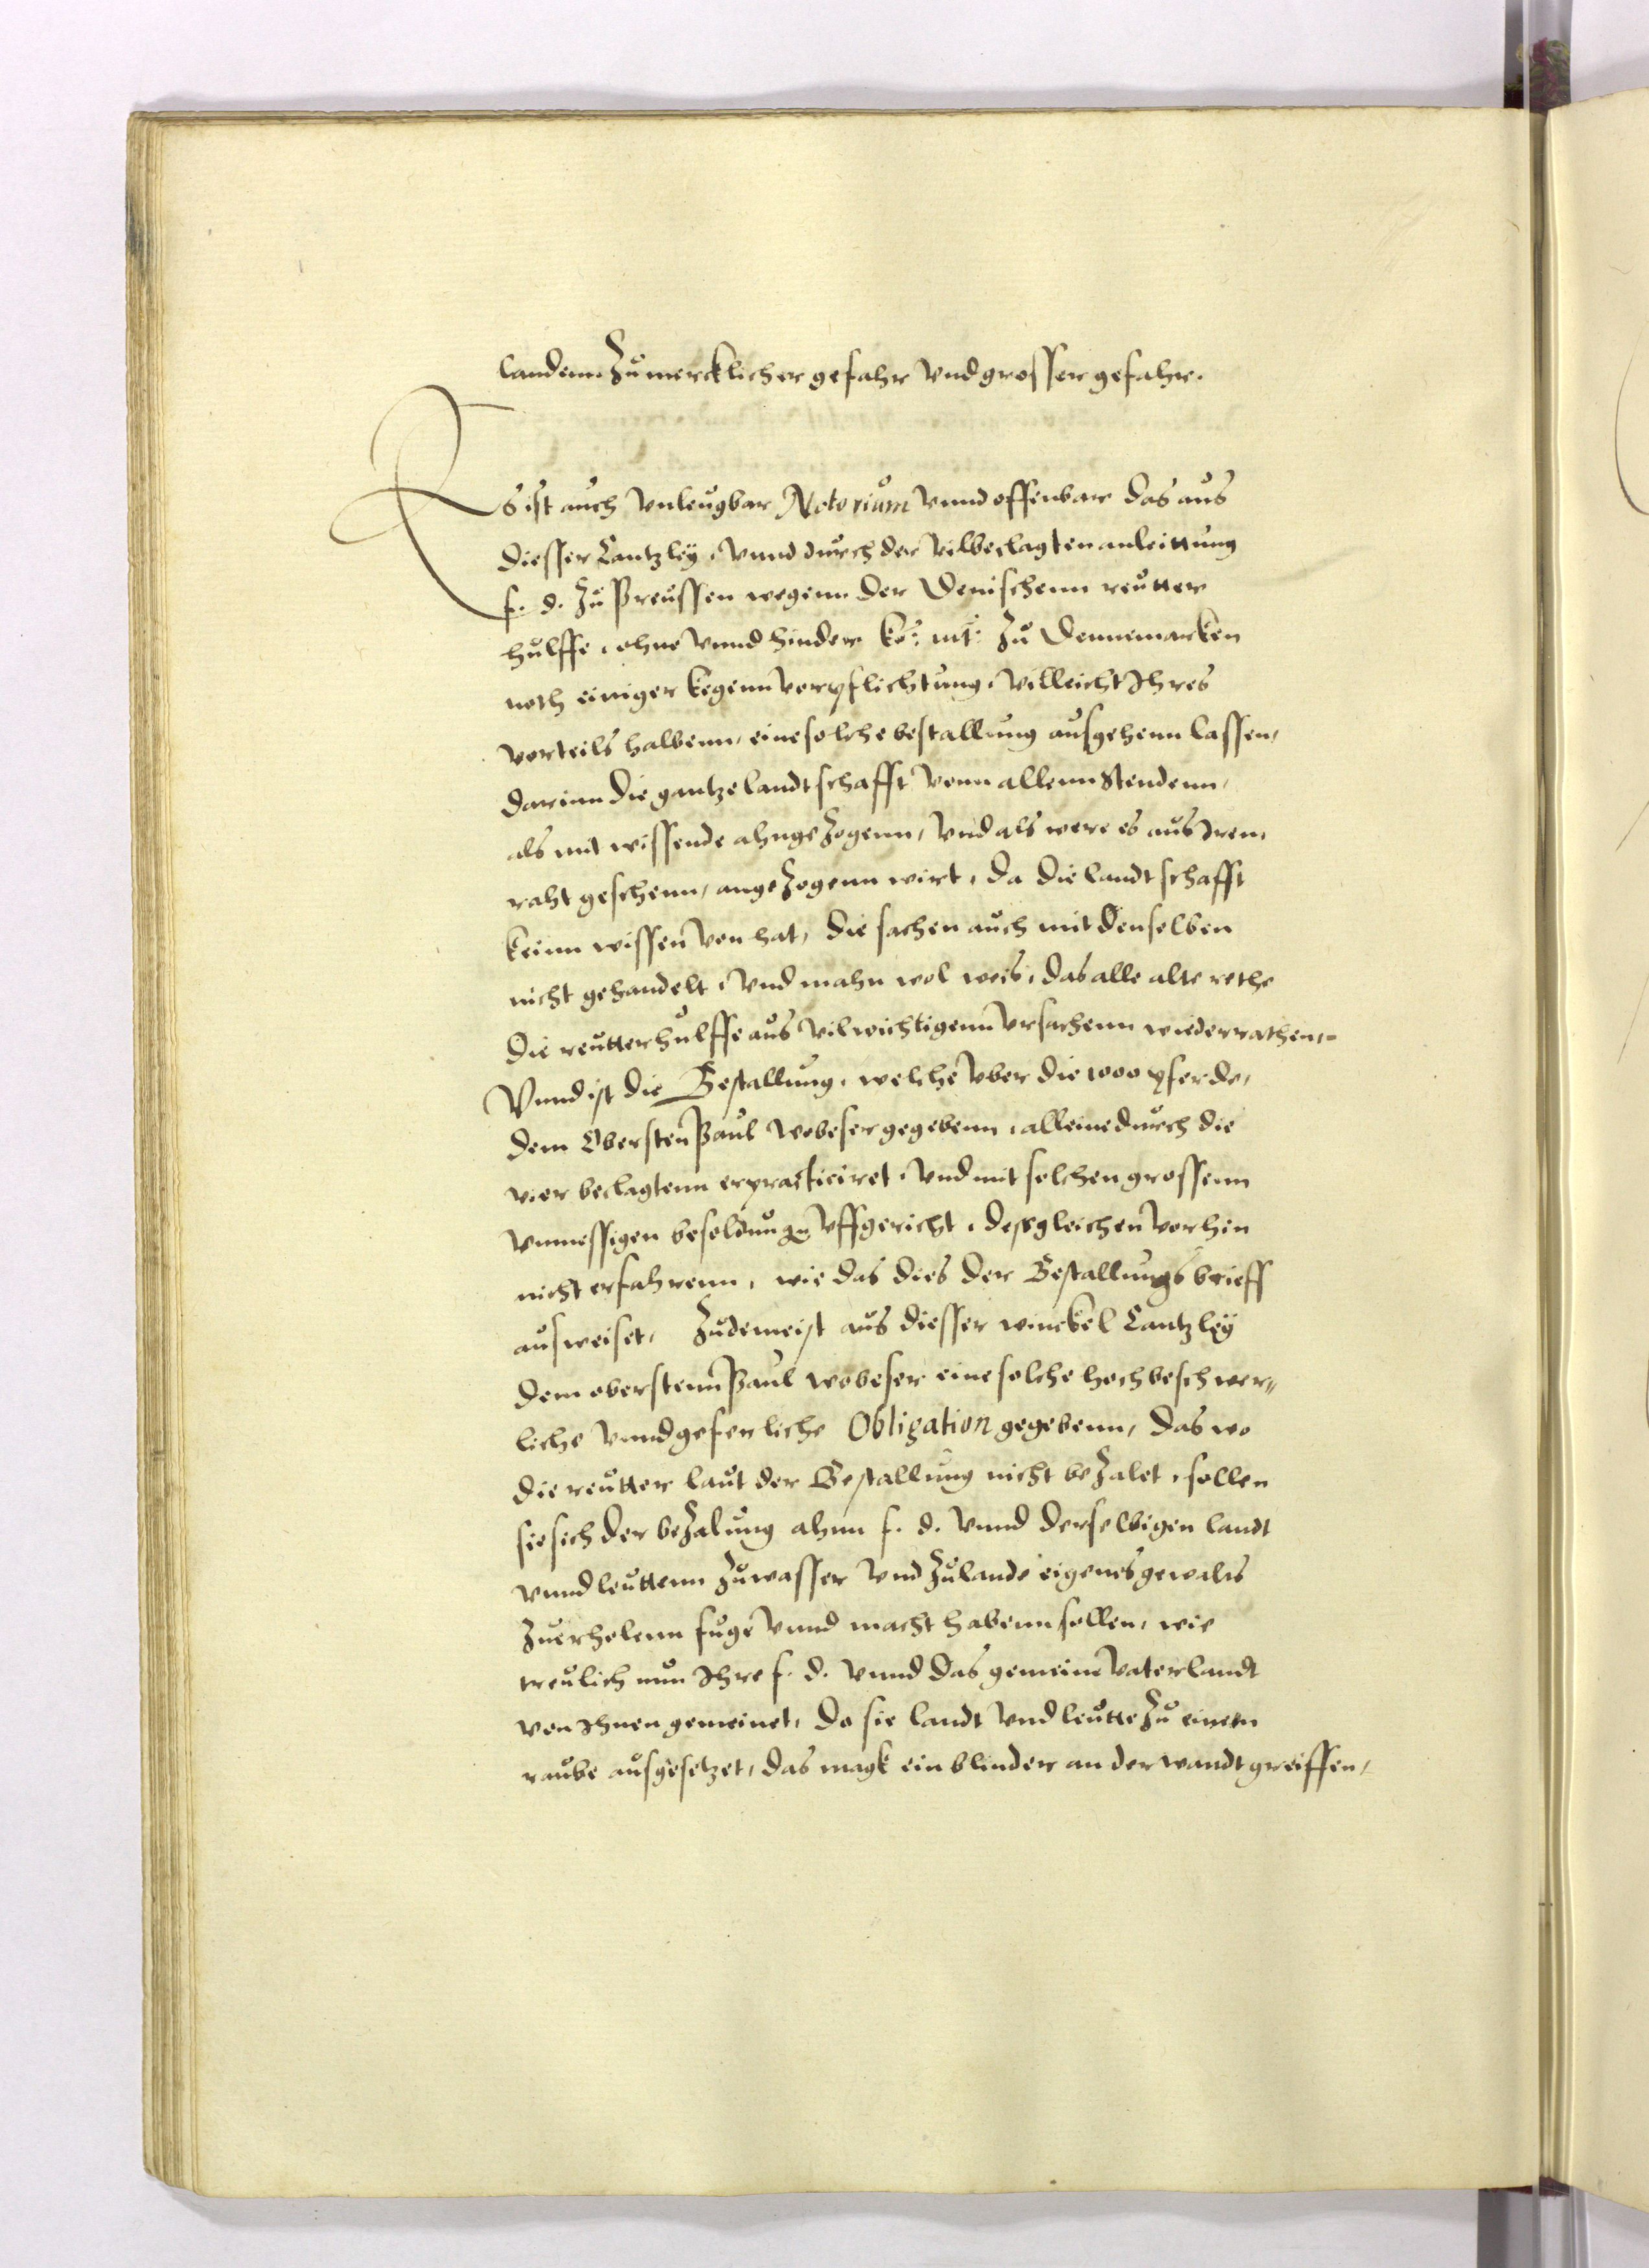 landenn. Zu mercklicher gefahr vnd grosser gefahr.
Es ist auch vnleugbar Notorium vnnd offenbar das aus
diesser Cantzley, vnnd durch der vilbeclagten anleittung
f. d. zu Preussen wegenn der Denischenn reutter
hulffe, ohne vnnd hinder ko: mt: zu Dennemarken
noch einiger kegenn verpflichtung, villeicht Ihres
vorteils halbenn, eine solche bestallung ausgehenn lassen,
darinn die gantze landtschafft venn allenn Stendenn,
als mit wissende ahngezogenn, vnd als were es aus Irem
raht geschenn, angezogenn wirt, da die landtschafft
keinn wissen von hat, die sachen auch mit denselben
nicht gehandelt, vnd mahn wol weis, das alle alte rethe
die reutterhulffe aus vil wichtigenn vrsachenn wiederrathen,-
Vnnd ist die Bestallung, welche vber die 1000 pferde,
dem Obersten Paul Wobeser gegebenn, alleine durch die
vier beclagtenn erpracticiret, vnd mit solchen grossenn
vnmessigen besoldungen vffgericht, desgleichen vorhin
nicht erfahrenn, wie das dies der Bestallungs brieff
ausweiset, Zudeme ist aus diesser winckel Cantzley
dem oberstenn Paul wobeser eine solche hochbeschwer„
liche vnnd geferliche Obligation gegebenn, das wo
die reutter laut der Bestallung nicht bezalet, sollen
sie sich der bezalung ahnn f. d. vnnd derselbigen landt
vnnd leuttenn zu wasser vnd zu lande eigenes gewalts
zuerholenn fuge vnnd macht habenn sollen, wie
treulich nun Ihre f. d. vnnd das gemeine vaterlandt
von Ihnen gemeinet, do sie landt vnd leutte zu einem
raube ausgesetzet, das magk ein blinder an der wandt greiffen,